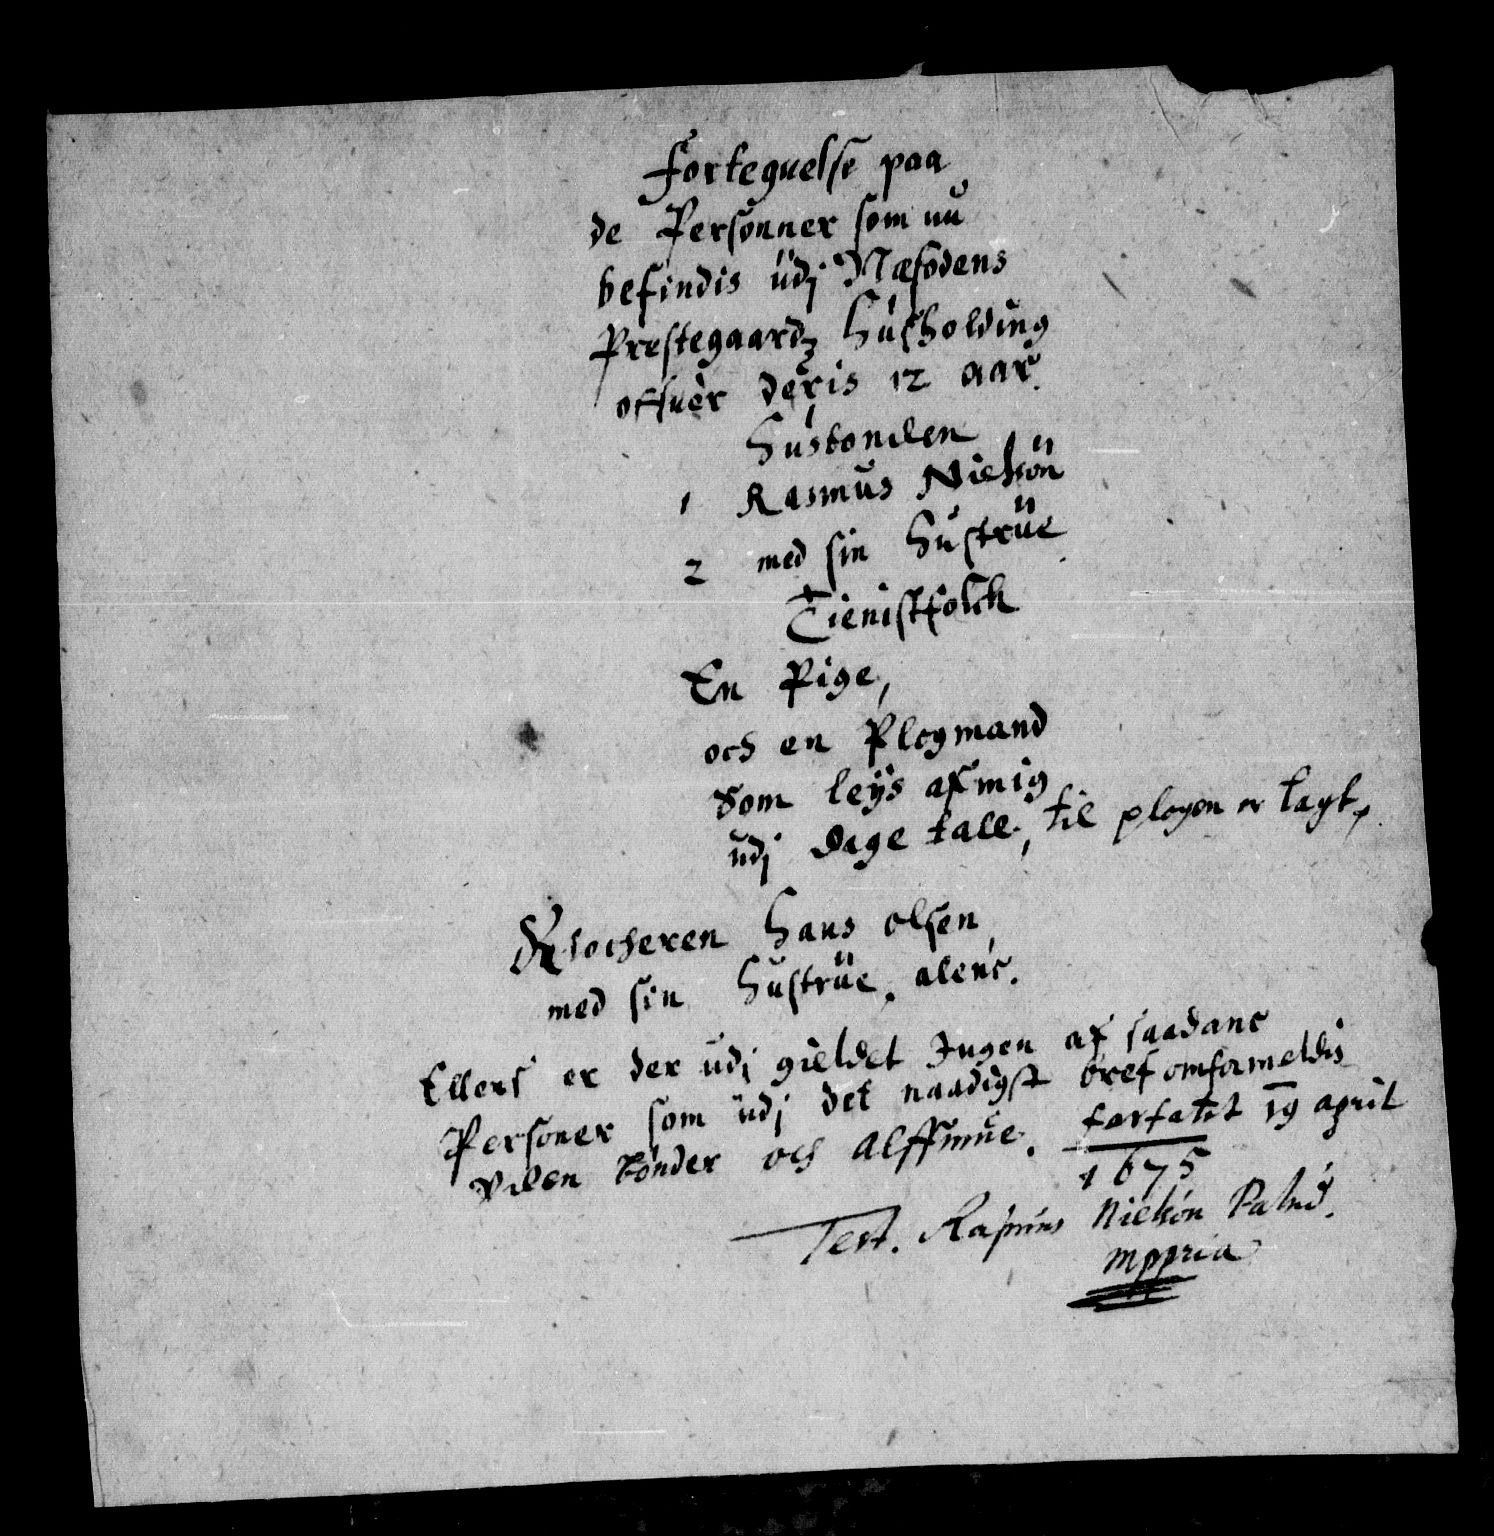 Fortegnelse paa
de Personner som nu
befindis udj Næsodens
Prestegaardz Husholding
offuer deris 12 aar.
Husbonden
1 Rasmus Nielsön
2 med sin Hustrue
Tienistfolck
En Pige,
och en Plogmand
som leÿs af mig
udj dage tall, til plogen er lagt,
Klocheren Hans Olsen,
med sin Hustrue. alene.
Ellers er der udj gieldet Ingen af saadane
Personer som udj det naadigst bref omformeldis
uden bönder och Alffmue. forfatit 19 april
1675
Test. Rasmus Nielsön Palud.
mppria